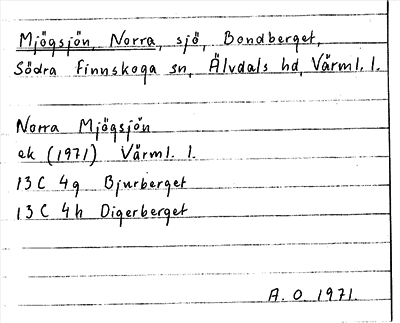 Mjögsjön, Norra, sjö, Bondberget,
Södra finnskoga sn, Älvdals hd, Värml. l.
Norra Mjögsjön
ek (1971) Värml. l.
13 C 4g Bjurberget
13 C 4h Digerberget
A. O. 1971.